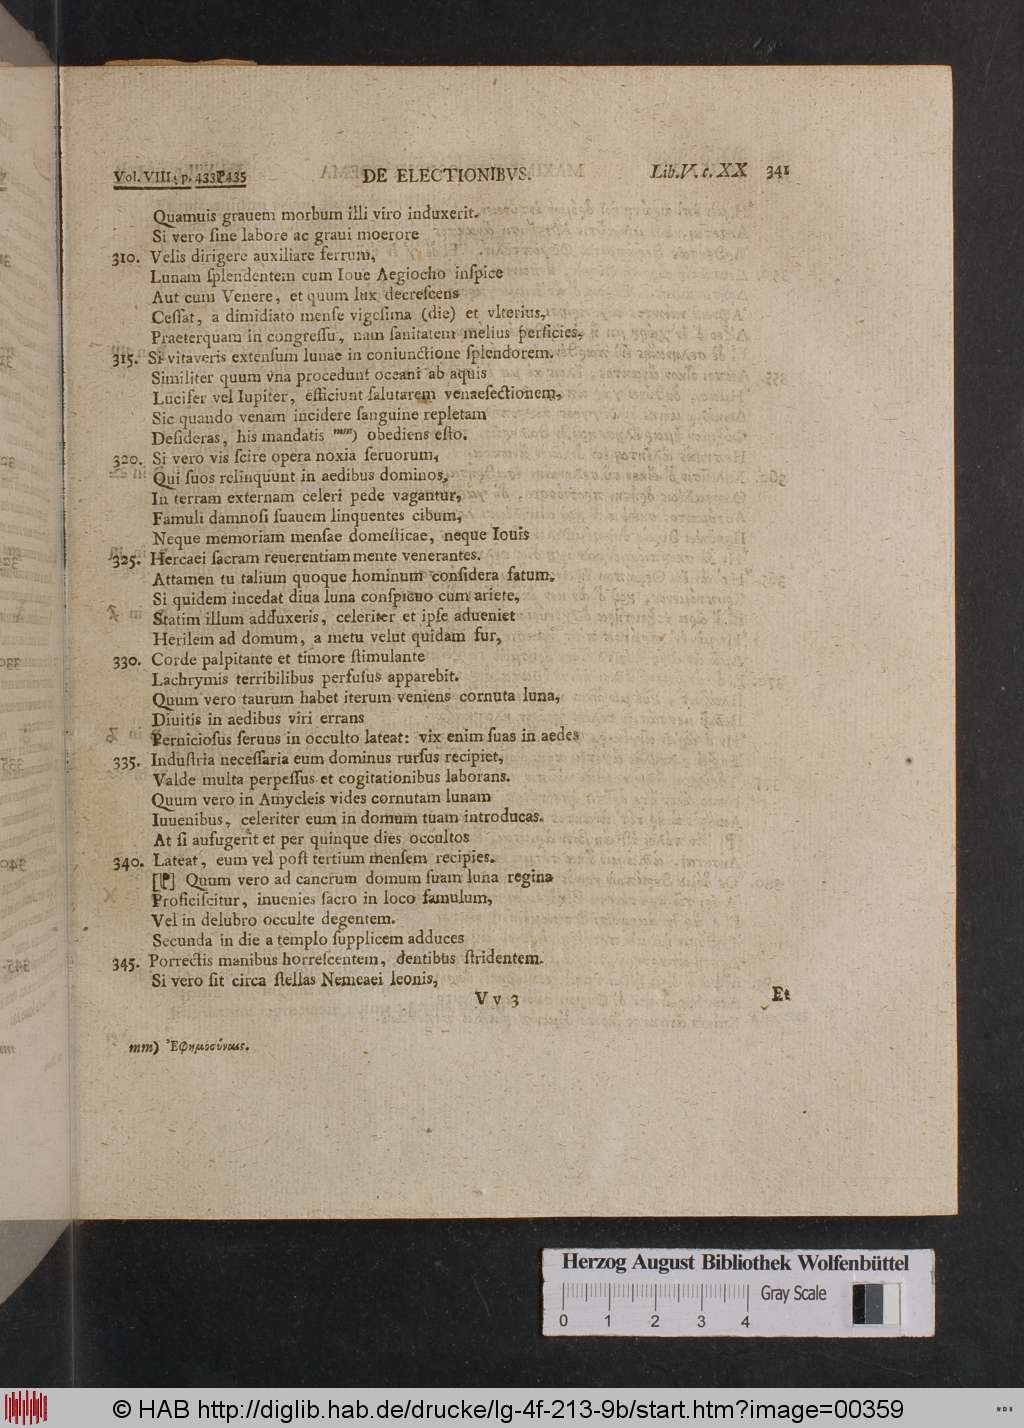 Vol. VIII. p. 433⁋435 DE ELECTIONIBVS. Lib. V. c. XX 341
Quamuis grauem morbum illi viro induxerit.
Si vero ſine labore ac graui moerore
310. Velis dirigere auxiliare ferrum,
Lunam ſplendentem cum Ioue Aegiocho inſpice
Aut cum Venere, et quum lux decreſcens
Ceſſat, a dimidiato menſe vigeſima (die) et vlterius,
Praeterquam in congreſſu, nam ſanitatem melius perficies,
315. Si vitaveris extenſum lunae in coniunctione ſplendorem.
Similiter quum vna procedunt oceani ab aquis
Lucifer vel Iupiter, efficiunt ſalutarem venaeſectionem,
Sic quando venam incidere ſanguine repletam
Deſideras, his mandatis mm) obediens eſto.
320. Si vero vis ſcire opera noxia ſeruorum,
Qui ſuos relinquunt in aedibus dominos,
In terram externam celeri pede vagantur,
Famuli damnoſi ſuauem linquentes cibum,
Neque memoriam menſae domeſticae, neque Iouis
325. Hercaei ſacram reuerentiam mente venerantes.
Attamen tu talium quoque hominum conſidera fatum,
Si quidem incedat diua luna conſpicuo cum ariete,
Statim illum adduxeris, celeriter et ipſe adueniet
Herilem ad domum, a metu velut quidam fur,
330. Corde palpitante et timore ſtimulante
Lachrymis terribilibus perfuſus apparebit.
Quum vero taurum habet iterum veniens cornuta luna,
Diuitis in aedibus viri errans
Pernicioſus ſeruus in occulto lateat: vix enim ſuas in aedes
335. Induſtria neceſſaria eum dominus rurſus recipiet,
Valde multa perpeſſus et cogitationibus laborans.
Quum vero in Amycleis vides cornutam lunam
Iuuenibus, celeriter eum in domum tuam introducas.
At ſi aufugerit et per quinque dies occultos
340. Lateat, eum vel poſt tertium menſem recipies.
[⁋] Quum vero ad cancrum domum ſuam luna regina
Proficiſcitur, inuenies ſacro in loco famulum,
Vel in delubro occulte degentem.
Secunda in die a templo ſupplicem adduces
345. Porrectis manibus horreſcentem, dentibus ſtridentem.
Si vero ſit circa ſtellas Nemeaei leonis,
V v 3 Et
mm) Ἐφημοσύναις.
Herzog August Bibliothek Wolfenbüttel
Gray Scale
0 1 2 3 4
© HAB http://diglib.hab.de/drucke/lg-4f-213-9b/start.htm?image=00359